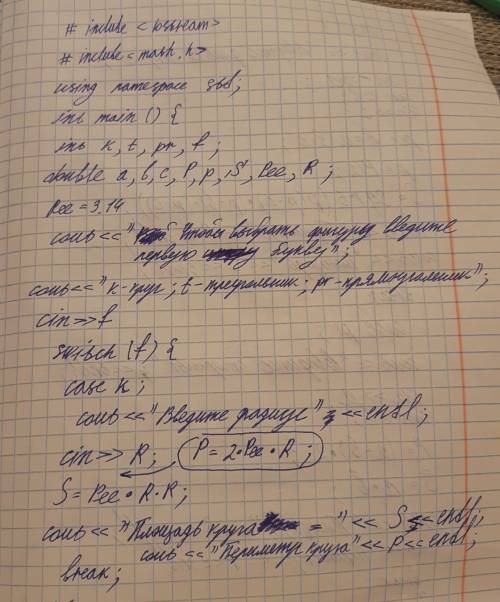 # include <iostream>
# include <math.h>
using namespace std;
int main () {
int k, t, pr, f;
double a, b, c, P, p, S, Pee, R;
Pee = 3,14
cout << " Чтобы выбрать фигуру введите
первую букву";
cout << "k-круг; t-треугольник; pr-прямоугольник";
cin >> f
switch (f) {
case k;
cout << "Введите радиус" << endl;
cin >> R; P = 2 * Pee * R;
S = Pee * R * R;
cout << "Площадь круга = " << S << endl;
cout << "Периметр круга" << P << endl;
break;